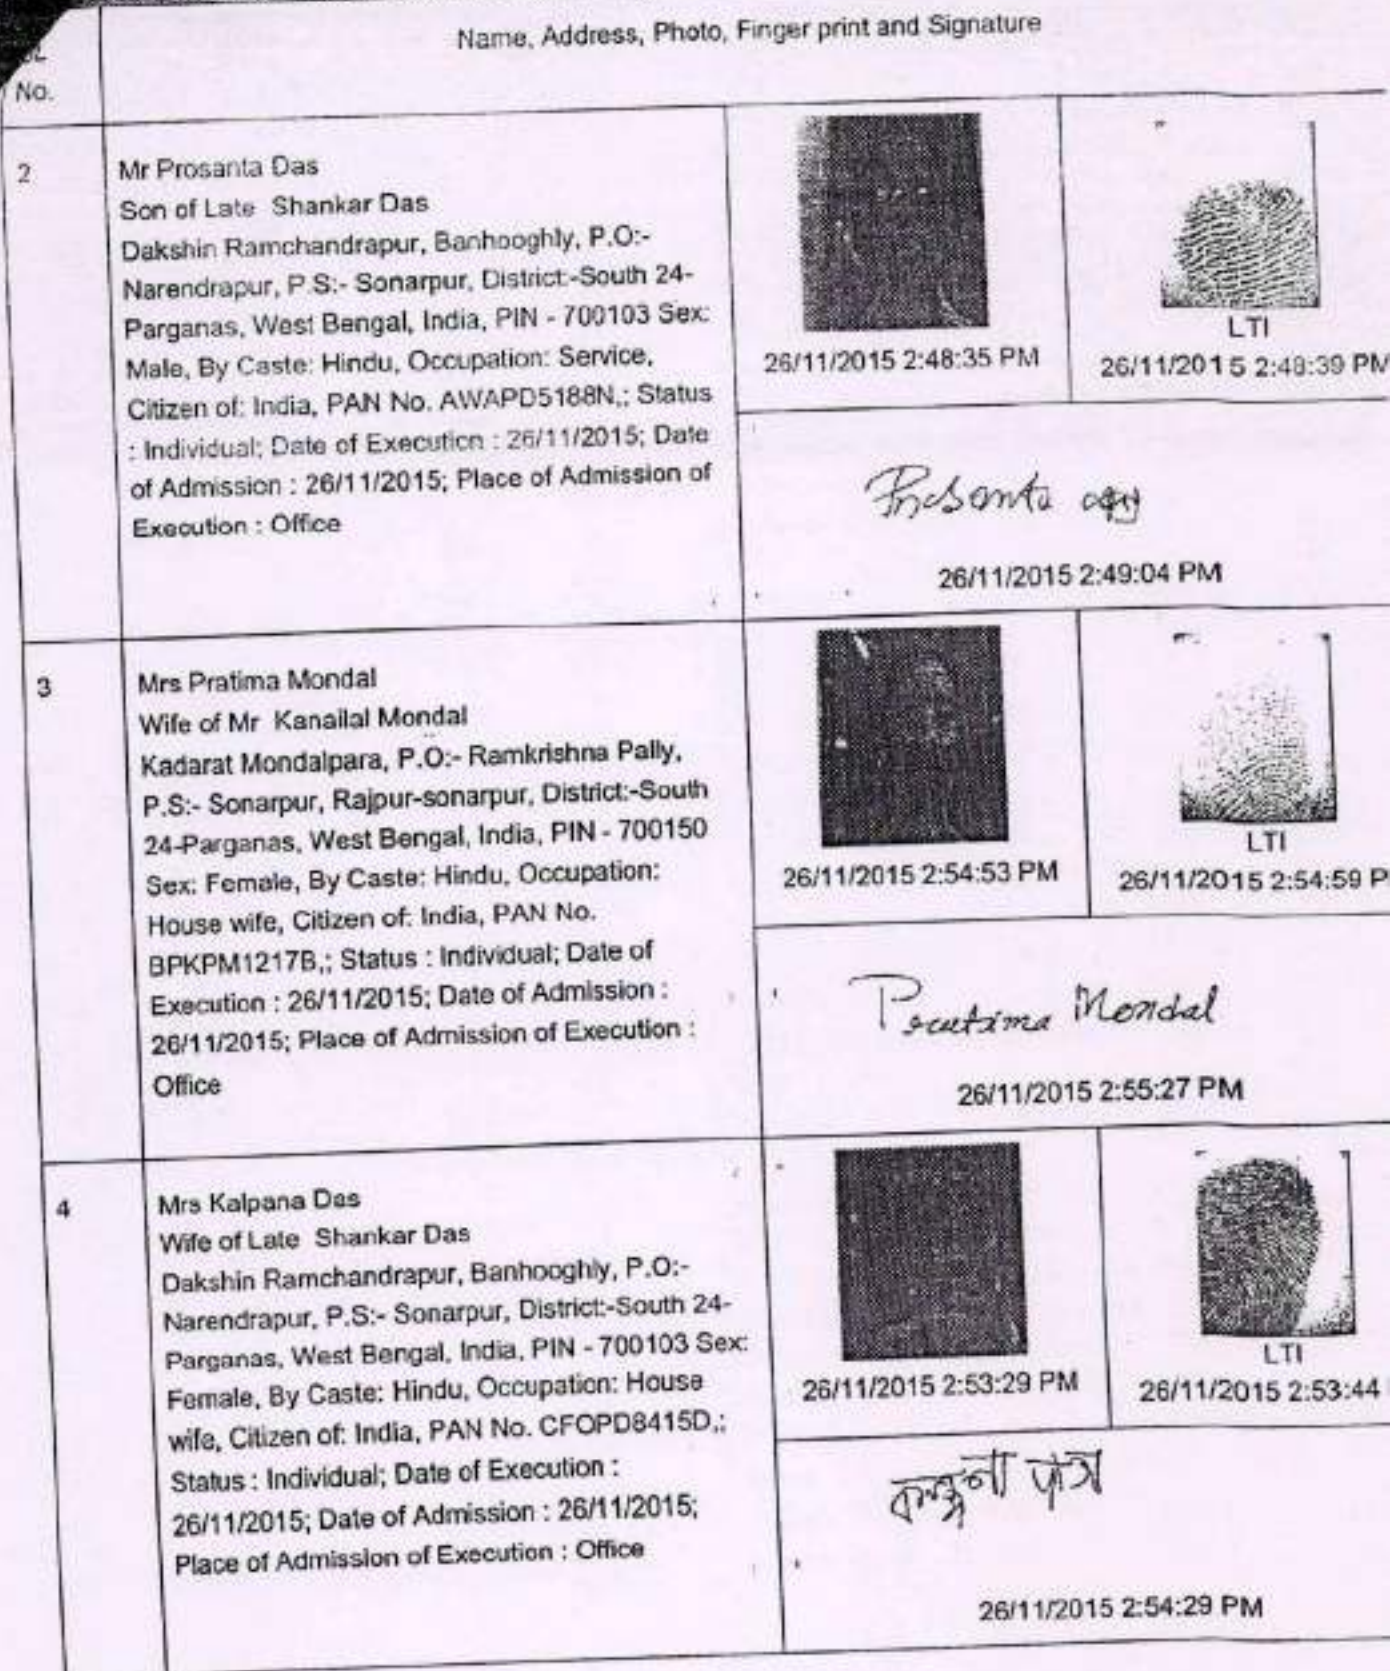 SL
No.
Name, Address, Photo, Finger print and Signature
2
Mr Prosanta Das
Son of Late Shankar Das
Dakshin Ramchandrapur, Banhooghly, P.O:-
Narendrapur, P.S:- Sonarpur, District:-South 24-
Parganas, West Bengal, India, PIN - 700103 Sex:
Male, By Caste: Hindu, Occupation: Service,
Citizen of: India, PAN No. AWAPD5188N,; Status
: Individual; Date of Execution : 26/11/2015; Date
of Admission : 26/11/2015; Place of Admission of
Execution : Office
26/11/2015 2:48:35 PM
LTI
26/11/2015 2:48:39 PM
Prosanta
26/11/2015 2:49:04 PM
3
Mrs Pratima Mondal
Wife of Mr Kanailal Mondal
Kadarat Mondalpara, P.O:- Ramkrishna Pally,
P.S:- Sonarpur, Rajpur-sonarpur, District:-South
24-Parganas, West Bengal, India, PIN - 700150
Sex: Female, By Caste: Hindu, Occupation:
House wife, Citizen of: India, PAN No.
BPKPM1217B,; Status : Individual; Date of
Execution : 26/11/2015; Date of Admission :
26/11/2015; Place of Admission of Execution :
Office
26/11/2015 2:54:53 PM
LTI
26/11/2015 2:54:59 P
Pratima Mondal
26/11/2015 2:55:27 PM
4
Mrs Kalpana Das
Wife of Late Shankar Das
Dakshin Ramchandrapur, Banhooghly, P.O:-
Narendrapur, P.S:- Sonarpur, District:-South 24-
Parganas, West Bengal, India, PIN - 700103 Sex:
Female, By Caste: Hindu, Occupation: House
wife, Citizen of: India, PAN No. CFOPD8415D,;
Status : Individual; Date of Execution :
26/11/2015; Date of Admission : 26/11/2015;
Place of Admission of Execution : Office
26/11/2015 2:53:29 PM
LTI
26/11/2015 2:53:44
কল্পনা দাস
26/11/2015 2:54:29 PM